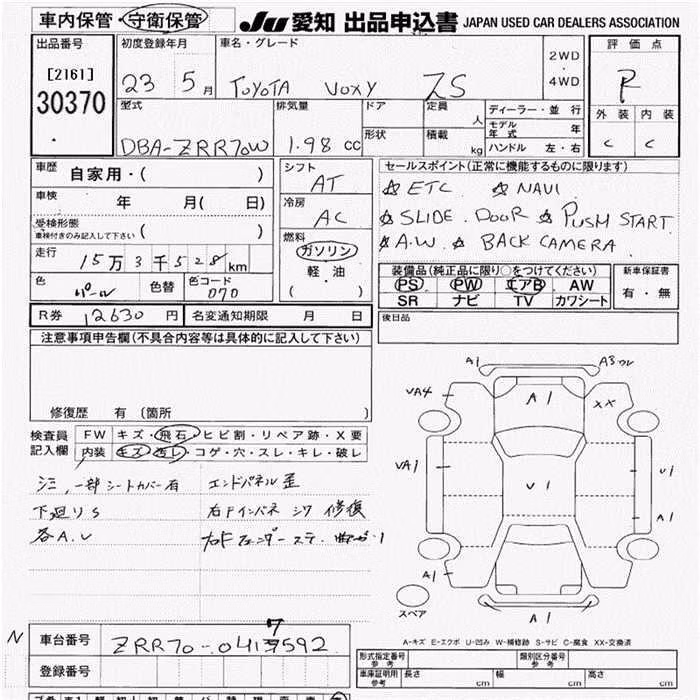 車内保管・守衛保管 JU 愛知 出品申込書 JAPAN USED CAR DEALERS ASSOCIATION
出品番号 初度登録年月 車名・グレード 評価点
[2161] 23 5月 TOYOTA VOXY ZS 2WD・4WD R
30370 型式 排気量 ドア 定員 人 ディーラー・並行 外装 内装
モデル年式 年
DBA-ZRR70W 1.98 cc 形状 積載 kg ハンドル 左・右 C C
車歴 自家用・( ) シフト AT セールスポイント(正常に機能するものに限ります)
☆ETC ☆NAVI
車検 年 月( 日) 冷房 AC ☆SLIDE.DOOR ☆PUSH START
受検形態 車検付きのみ記入して下さい ( ) 燃料 ガソリン ☆A.W ☆BACK CAMERA
走行 15万3千528km 軽・油 装備品(純正品に限り○をつけてください) 新車保証書
色 パール 色替 色コード 070 ( ) PS PW エアB AW 有・無
SR ナビ TV カワシート
R券 12630円 名変通知期限 月 日 後日品
注意事項申告欄(不具合内容等は具体的に記入して下さい)
修復歴 有 (箇所 )
検査員 FW キズ・飛石・ヒビ割・リペア跡・X要
記入欄 内装 キズ・汚レ・コゲ・穴・スレ・キレ・破レ
シミ,一部シートカバー有 エンドパネル歪
下廻りS 右Fインパネ シワ 修復
各A.U
A1 A3
VA4 A1 XX
VA1 U1 U1
A1
A1 A1
スペア
A-キズ E-エクボ U-凹み W-補修跡 S-サビ C-腐食 XX-交換済
N 車台番号 ZRR70-0417592
登録番号
形式指定番号 参考 類別区分番号 参考
車庫証明用 参考 長さ cm 幅 cm 高さ cm